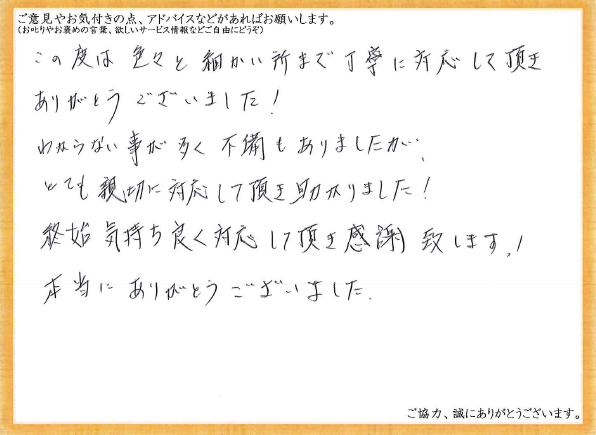 ご意見やお気付きの点、アドバイスなどがあればお願いします。
(お叱りやお褒めの言葉、欲しいサービス情報などご自由にどうぞ)
この度は色々と細かい所まで丁寧に対応して頂き
ありがとうございました！
わからない事が多く不備もありましたが、
とても親切に対応して頂き助かりました！
終始気持ち良く対応して頂き感謝致します！
本当にありがとうございました.
ご協力、誠にありがとうございます。